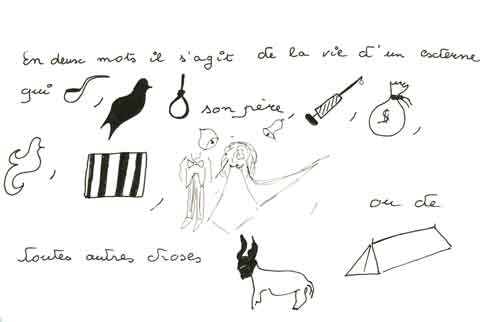 En deux mots il s'agit de la vie d'un externe
qui , , son père , ,
, , , ou de
toutes autres choses